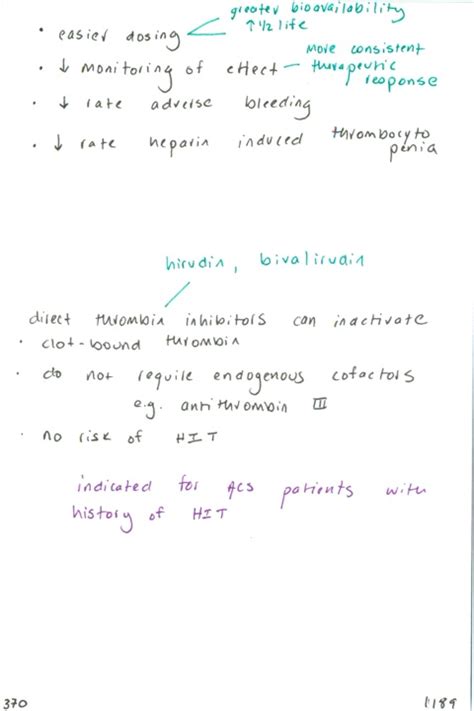 greater bioavailability
• easier dosing
↑ 1/2 life
More consistent
• ↓ monitoring of effect — therapeutic
response
• ↓ rate adverse bleeding
• ↓ rate heparin induced thrombocyto
penia
hirudin, bivalirudin
direct thrombin inhibitors can inactivate
• clot-bound thrombin
• do not require endogenous cofactors
e.g. antithrombin III
• no risk of HIT
indicated for ACS patients with
history of HIT
370
1189